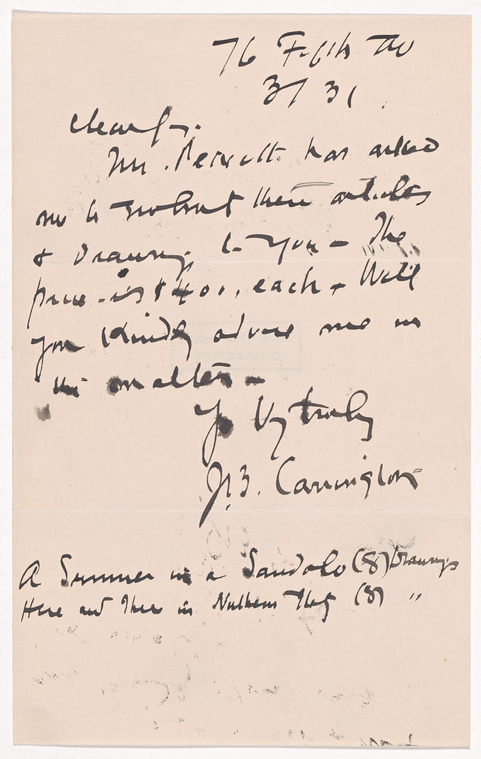 76 Fifth Av
3/31
Dear Sir.
Mr. Pennell has asked
me to submit these articles
& Drawings to you - The
price is $400. each - Will
you Kindly advise me in
the matter -
Yr Vy truly
J.B. Carrington
A Summer in a Sandolo (8) Drawings
Here and There in Northern Italy (8) "